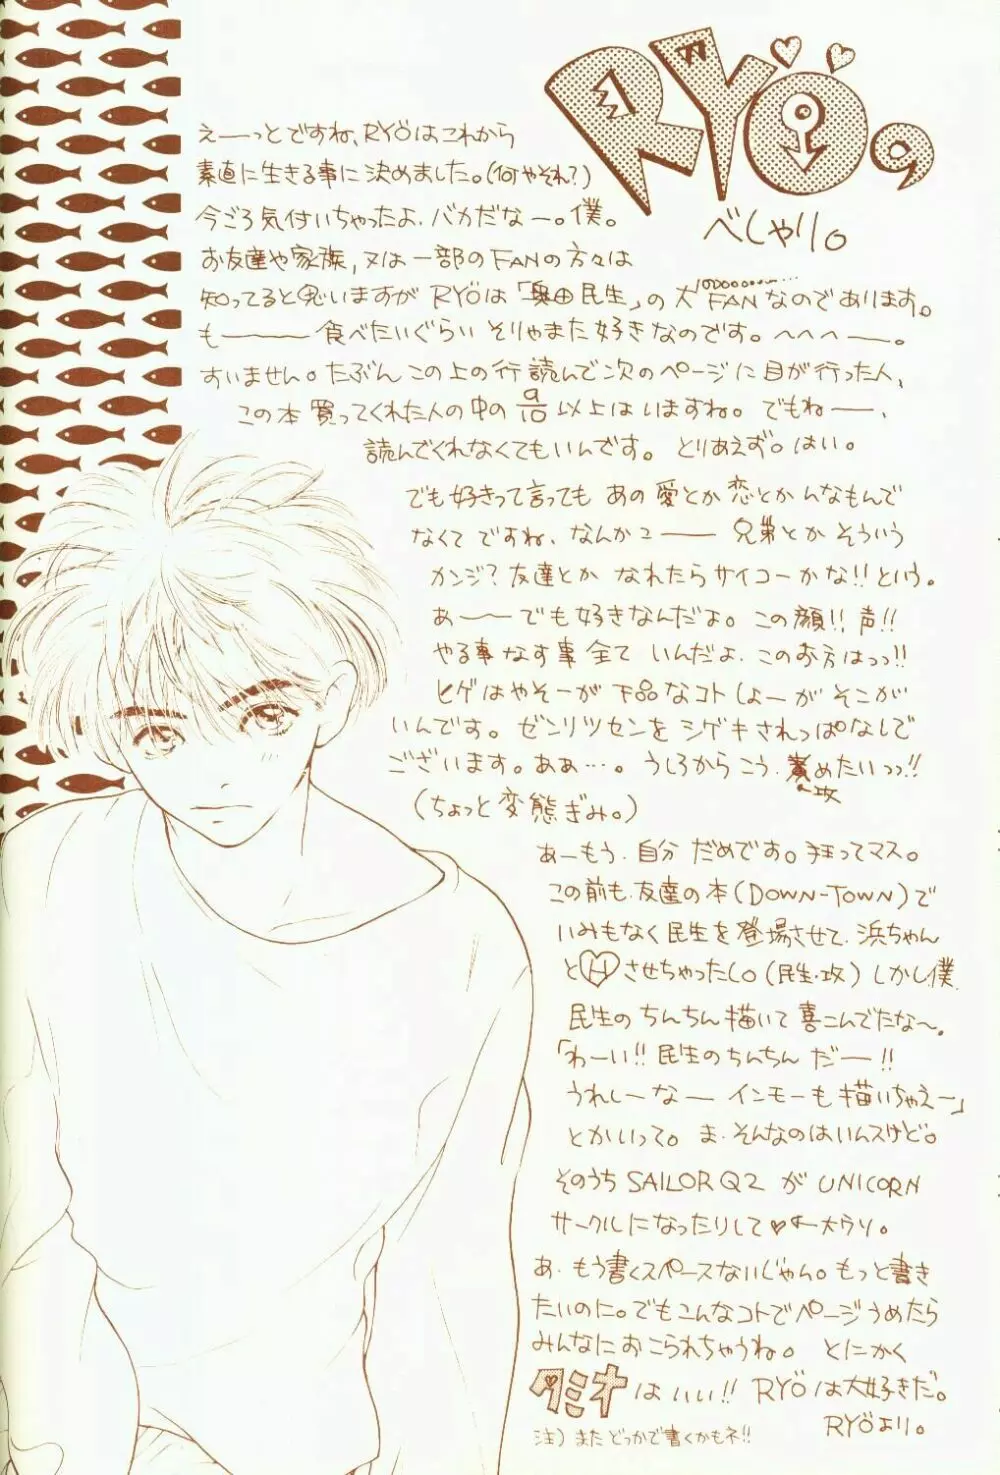 RYÖの
べしゃり。
えーーっとですね、RYÖはこれから
素直に生きる事に決めました。(何やそれ?)
今ごろ気付いちゃったよ、バカだなー。僕。
お友達や家族、又は一部のFANの方々は
知ってると思いますが RYÖは「奥田民生」の大FANなのであります。
も――― 食べたいぐらい そりゃまた好きなのです。へへへー。
すいません。たぶん この上の行 読んで次のページに目が行った人、
この本 買ってくれた人の中の 9/10 以上はいますね。でもねー、
読んでくれなくてもいんです。とりあえず。はい。
でも好きって言っても あの愛とか恋とか んなもんで
なくて ですね、なんかこ―― 兄弟とか そういう
カンジ?友達とか なれたらサイコーかな!!という。
あ――でも好きなんだよ。この顔!!声!!
やる事なす事全て いんだよ、このお方はっっ!!
ヒゲはやそーが 下品なコトしよーが そこが
いんです。ゼンリツセンを シゲキされっぱなしで
ございます。ああ…。うしろから こう、責めたいっっ!!
攻
(ちょっと変態ぎみ。)
あーもう、自分 だめです。狂ってマス。
この前も、友達の本(DOWN-TOWN)で
いみもなく民生を登場させて、浜ちゃん
とHさせちゃったし。(民生・攻)しかし僕、
民生のちんちん描いて喜こんでたな〜。
「わーい!!民生のちんちん だー!!
うれしーなー インモーも描いちゃえー」
とかいって。ま、そんなのはいんスけど。
そのうち SAILOR Q2 が UNICORN
サークルになったりして♥←大ウソ。
あ、もう書くスペースないじゃん。もっと書き
たいのに。でもこんなコトでページうめたら
みんなにおこられちゃうね。とにかく
タミオはいい!! RYÖは大好きだ。
RYÖより。
注) またどっかで書くかもネ!!